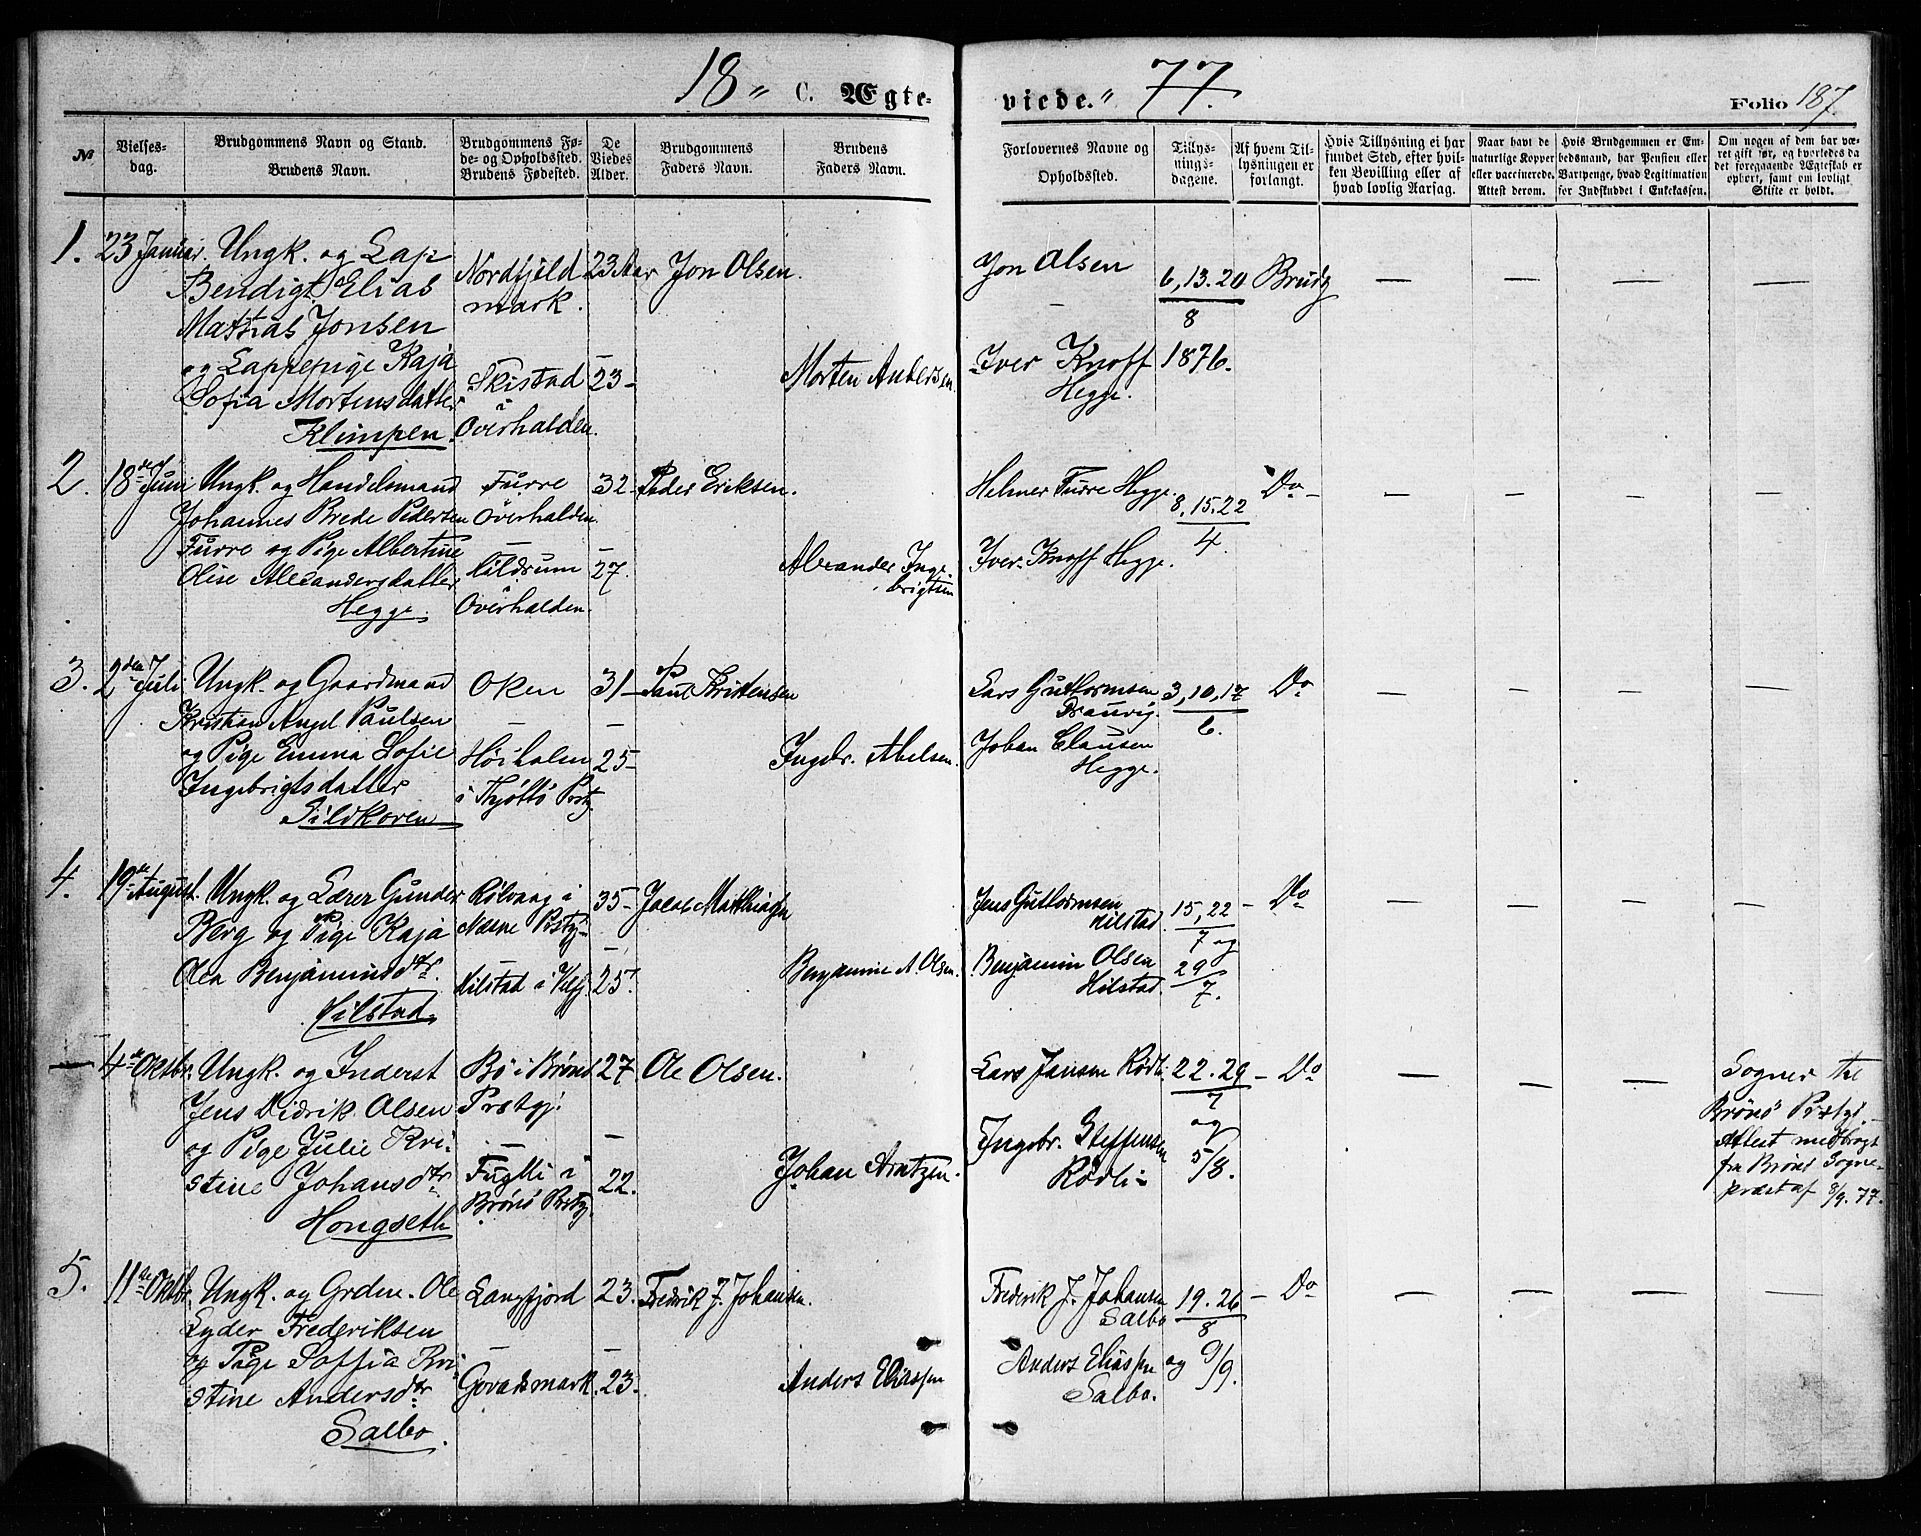 18 " C. Ægte-
viede. " 77.
Folio 187.
№
Vielses-
dag.
Brudgommens Navn og Stand.
Brudens Navn.
Brudgommens Fø-
de- og Opholdssted.
Brudens Fødested.
De
Viedes
Alder.
Brudgommens
Faders Navn.
Brudens
Faders Navn.
Forlovernes Navne og
Opholdssted.
Tillys-
nings-
dagene.
Af hvem Til-
lysningen er
forlangt.
Hvis Tillysning ei har
fundet Sted, efter hvil-
ken Bevilling eller af
hvad lovlig Aarsag.
Naar havt de
naturlige Kopper
eller vaccinerede.
Attest derom.
Hvis Brudgommen er Em-
bedsmand, har Pension eller
Vartpenge, hvad Legitimation
for Indskuddet i Enkekassen.
Om nogen af dem har væ-
ret gift før, og hvorledes da
det foregaaende Ægteskab er
ophørt, samt om lovligt
Skifte er holdt.
1. 23 Januar. Ungk. og Lap Nordfjeld 23 Aar Jon Olsen. Jon Olsen 6, 13. 20 Brudg — — — —
Bendigt Elias mark. — 8
Mattias Jonsen
og Lappepige Kaja Skistad 23- Morten Andersen. Iver Knoff 1876.
Sofia Mortensdatter i Hegge.
Klimpen. Overhalden.
2. 18de Juni Ungk. og Handelsmand Furre 32- Peder Eriksen. Helmer Furre Hegge. 8. 15. 22 Do — — — — —
Johannes Brede Pedersen Overhalden. 4.
Furre og Pige Albertine — Alexander Inge- Iver Knoff Hegge.
Olise Alexandersdatter Mildrum 27. brigtsen
Hegge. i Overhalden.
3. 2den Juli Ungk. og Gaardmand Oken 31- Paul Kristensen Lars Guttormsen 3, 10, 17 Do — — — —
Kristian Angel Paulsen — 6.
og Pige Emma Sofie Høiholm 25- Ingebr. Abelsen. Johan Clausen
Ingebrigtsdatter i Thjøttø Prstg. Hegge.
Sildkoven
4. 19de August. Ungk. og Lærer Gunder Rølvaag i 35- Jakob Matthiasen Jens Guttormsen 15, 22 — Do — — — —
Berg og Pige Kaja Næsne Prstgj. Hilstad. 7 og
Olea Benjaminsdtr. Hilstad i Velfj. 25. Benjamin A. Olsen. Benjamin Olsen 29
Hilstad. Hilstad. 7.
— 4de Oktbr. Ungk. og Inderst Bø i Brønø 27. Ole Olsen. Lars Jansen Rødli 22. 29 — Do — — — Sogner til
Jens Didrik Olsen Prstgj. 7 Brønø Prstgj.
og Pige Julie Kri- — Ingebr. Steffensen og Attest medbragt
stine Johansdtr Fuglli i 22. Johan Arntzen. Rødli 5/8. fra Brønø Sogne-
Hongseth Brønø Prstg. præst af 8/9. 77.
5. 11te Oktbr. Ungk. og Grdm. Ole Langfjord 23. Fredrik J. Johansen. Frederik J. Johansen 19. 26 — Do — — — —
Lyder Frederiksen Salbo 8
og Pige Soffia Kri- — Anders Eliassen og 9/9.
stine Andersdtr Govadsmark. 23. Anders Eliassen Salbo.
Salbo.